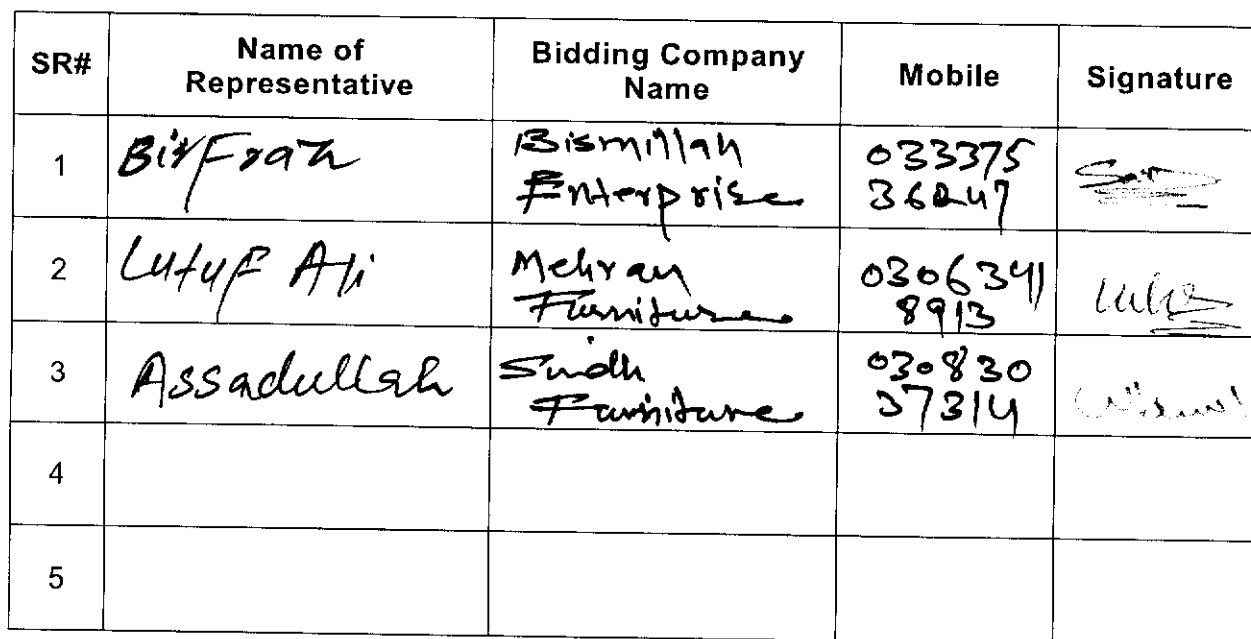 SR# Name of Representative Bidding Company Name Mobile Signature
1 Bismillah Enterprise 033375 36247
2 Lutuf Ali Mehran Furniture 0306341 8913
3 Assadullah Sindh Furniture 030830 37314
4
5